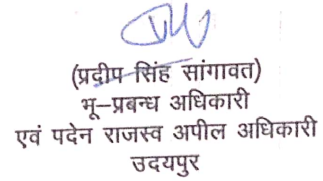 (प्रदीप सिंह सांगावत)
भू-प्रबन्ध अधिकारी
एवं पदेन राजस्व अपील अधिकारी
उदयपुर